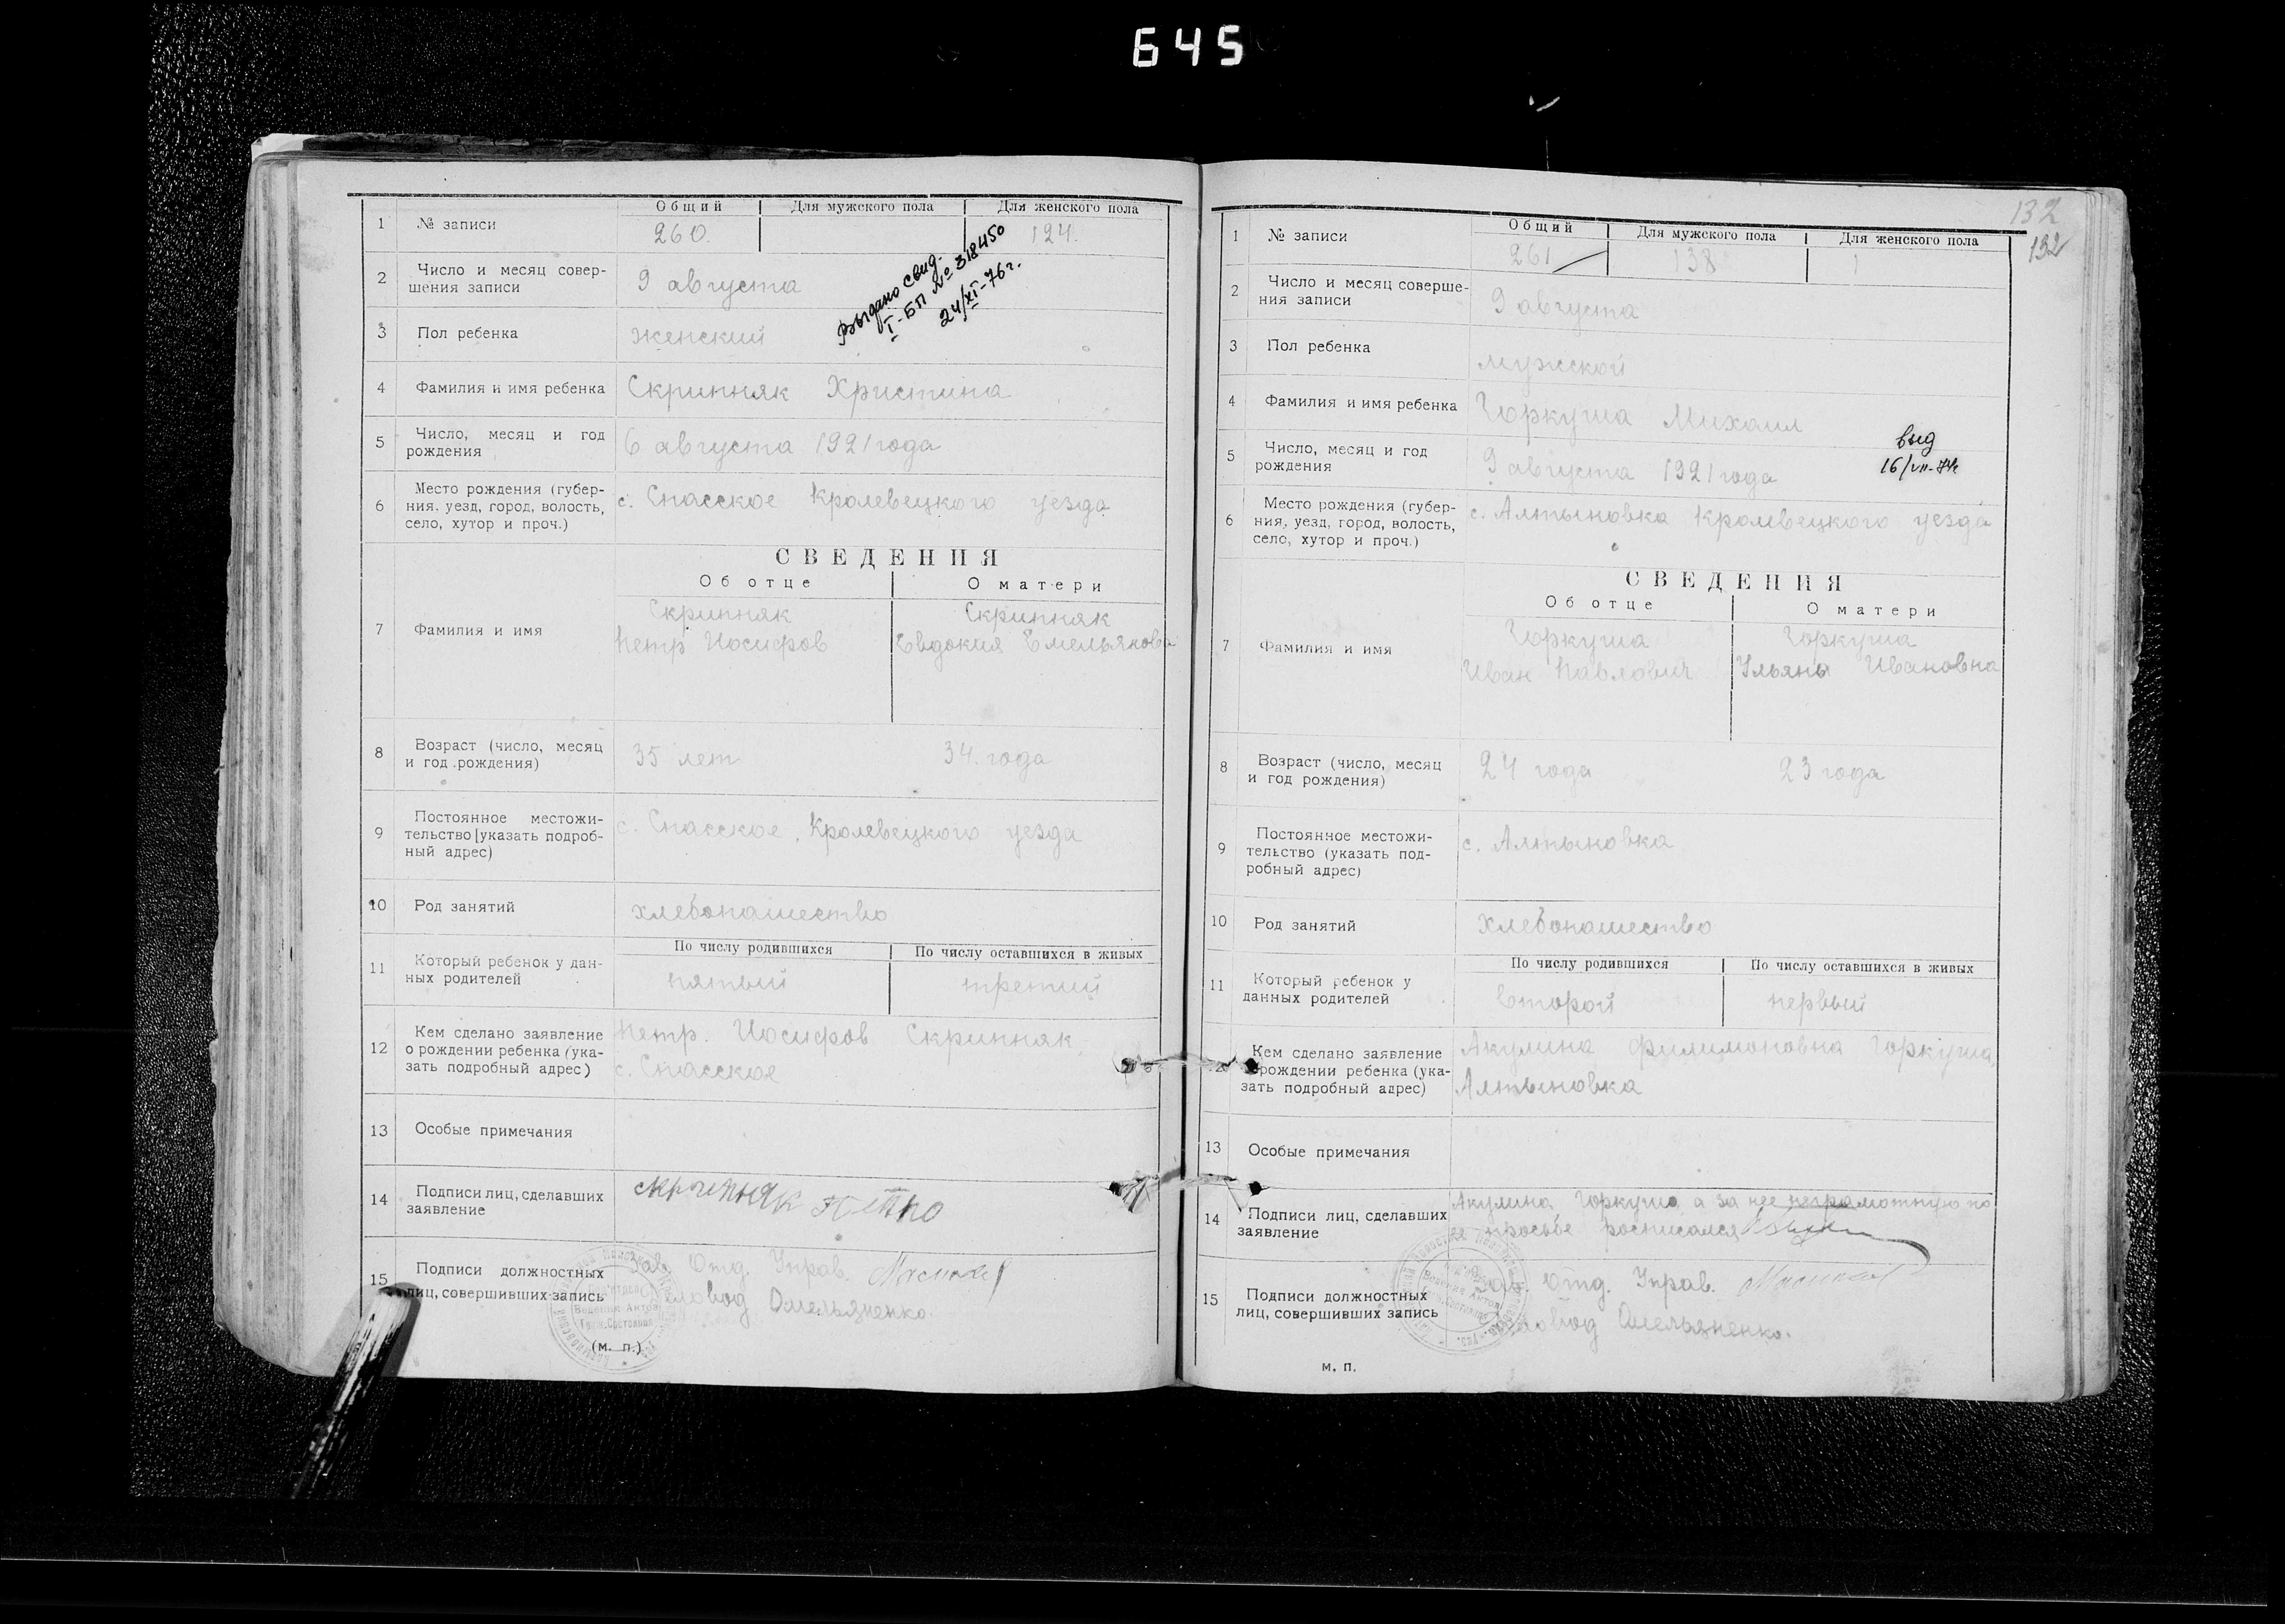 645
Общий Для мужского пола Для женского пола
1 № записи 260. 124.
2 Число и месяц совер-
шения записи 9 августа
Выдано свид.
I-БП № 318450
24/XI-76г.
3 Пол ребенка женский
4 Фамилия и имя ребенка Скрипняк Христина
5 Число, месяц и год
рождения 6 августа 1921 года
6 Место рождения (губер-
ния, уезд, город, волость,
село, хутор и проч.) с. Спасское Кролевецкого уезда
СВЕДЕНИЯ
Об отце О матери
7 Фамилия и имя
Скрипняк Скрипняк
Петр Иосифов Евдокия Емельянова
8 Возраст (число, месяц
и год рождения) 35 лет 34 года
9 Постоянное местожи-
тельство [указать подроб-
ный адрес) с. Спасское, Кролевецкого уезда
10 Род занятий хлебопашество
По числу родившихся По числу оставшихся в живых
11 Который ребенок у дан-
ных родителей пятый третий
12 Кем сделано заявление
о рождении ребенка (ука-
зать подробный адрес)
Петр. Иосифов Скрипняк
с. Спасское
13 Особые примечания
14 Подписи лиц, сделавших
заявление Скрипняк Петро
15 Подписи должностных
лиц, совершивших запись
Зав. Отд. Управ.
Омельяненко.
Ведения Актов
Гражд. Состояния
(м. п.)
132
132
Общий Для мужского пола Для женского пола
1 № записи 261 138
2 Число и месяц соверше-
ния записи 9 августа
3 Пол ребенка мужской
4 Фамилия и имя ребенка Горкуша Михаил
выд
16/VII-74г
5 Число, месяц и год
рождения 9 августа 1921 года
6 Место рождения (губер-
ния, уезд, город, волость,
село, хутор и проч.) с. Алтыновка Кролевецкого уезда
СВЕДЕНИЯ
Об отце О матери
7 Фамилия и имя
Горкуша Горкуша
Иван Павлович Ульяна Ивановна
8 Возраст (число, месяц
и год рождения) 24 года 23 года
9 Постоянное местожи-
тельство (указать под-
робный адрес) с. Алтыновка
10 Род занятий хлебопашество
По числу родившихся По числу оставшихся в живых
11 Который ребенок у
данных родителей второй первый
12 Кем сделано заявление
рождении ребенка (ука-
зать подробный адрес)
Акулина Филимоновна Горкуша
Алтыновка
13 Особые примечания
14 Подписи лиц, сделавших
заявление
Акулина Горкуша а за нее неграмотную по
ее просьбе росписался
15 Подписи должностных
лиц, совершивших запись
Зав. Отд. Управ.
Омельяненко.
м. п.